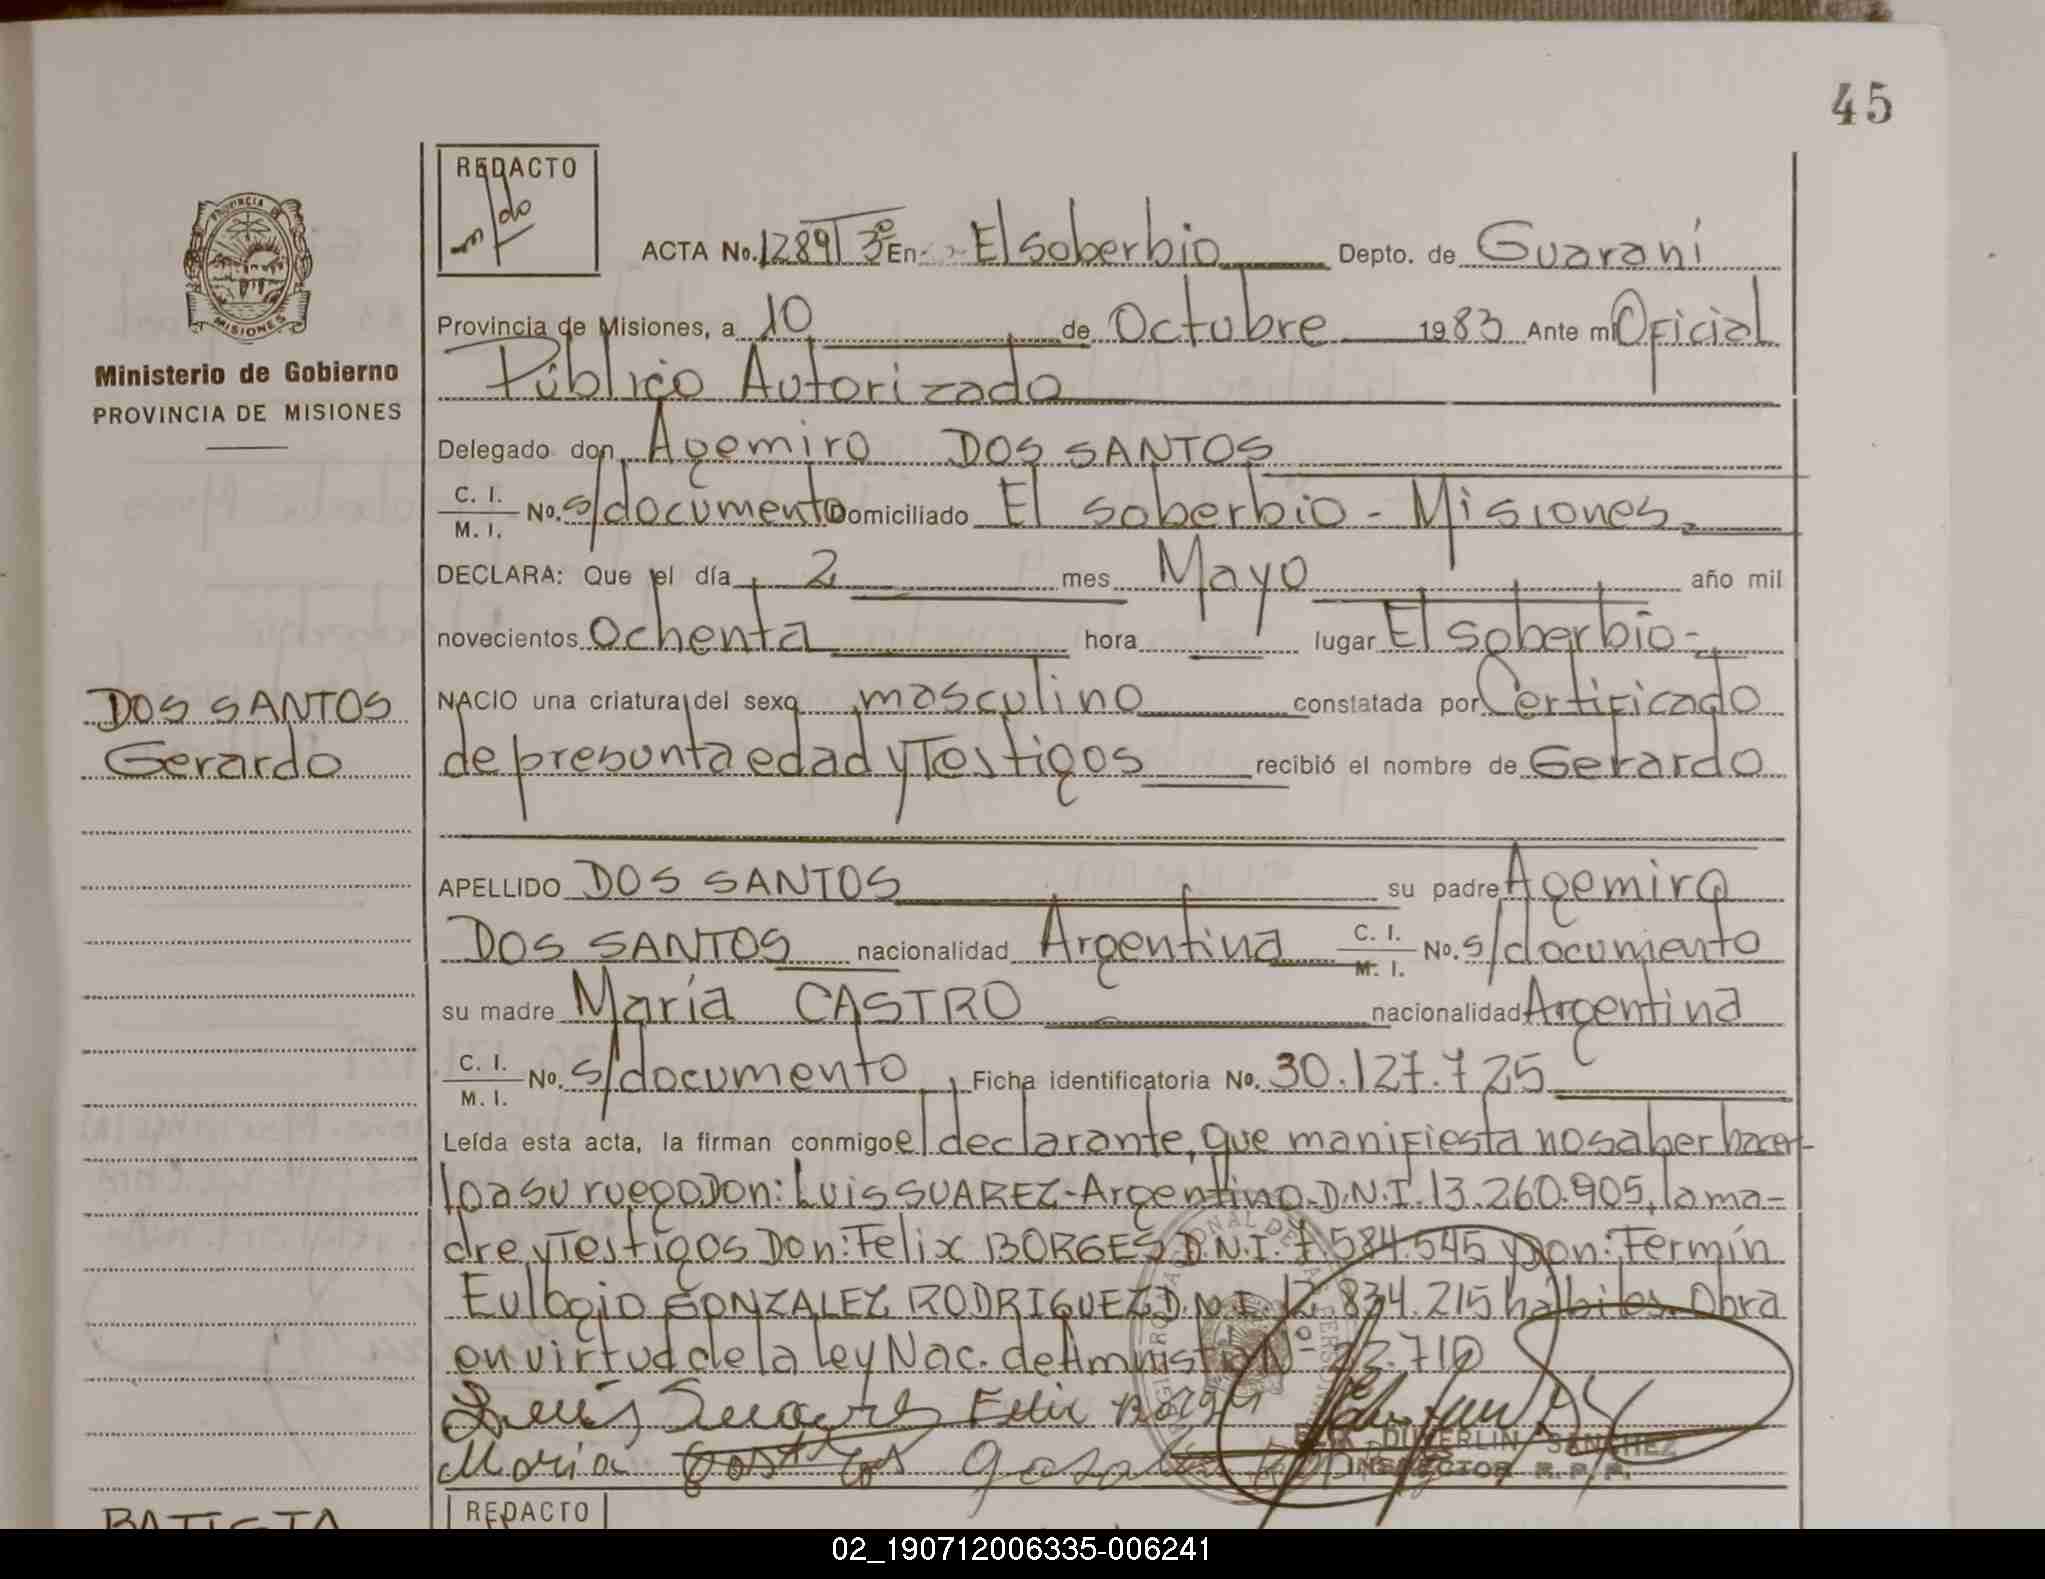 45
REDACTO
ACTA No. 1289 T 3º En El soberbio Depto. de Guaraní
Provincia de Misiones, a 10 de Octubre 1983 Ante mi Oficial
Público Autorizado
Delegado don Agemiro DOS SANTOS
C. I. / M. I. No. s/documento Domiciliado El soberbio - Misiones
DECLARA: Que el día 2 mes Mayo año mil
novecientos Ochenta hora lugar El soberbio-
NACIO una criatura del sexo masculino constatada por Certificado
de presunta edad y Testigos recibió el nombre de Gerardo
APELLIDO DOS SANTOS su padre Agemiro
DOS SANTOS nacionalidad Argentina C. I. / M. I. No. s/documento
su madre María CASTRO nacionalidad Argentina
C. I. / M. I. No. s/documento, Ficha identificatoria No. 30.127.725
Leída esta acta, la firman conmigo el declarante, que manifiesta no saber hacer-
lo a su ruego Don: Luis SUAREZ-Argentino-D.N.I. 13.260.905, la ma-
dre y Testigos Don: Felix BORGES D.N.I. 7.584.545 y Don: Fermín
Eulogio GONZALEZ RODRIGUEZ D.N.I. 12.834.215 hábiles. Obra
en virtud de la Ley Nac. de Amnistia Nº 22.710
Maria
DUVERLIN SANCHEZ
INSPECTOR R. P. P.
PROVINCIA DE
MISIONES
Ministerio de Gobierno
PROVINCIA DE MISIONES
DOS SANTOS
Gerardo
BATISTA
REDACTO
02_190712006335-006241